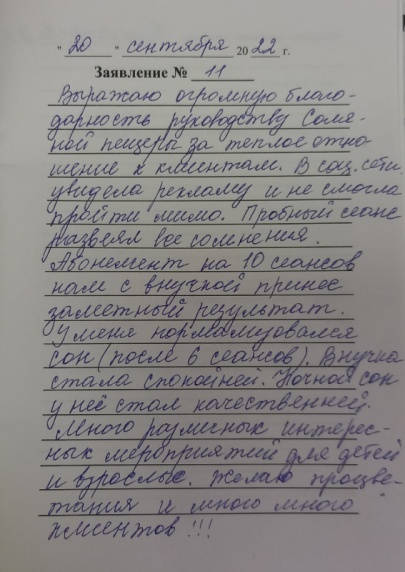 "20" сентября 2022 г.
Заявление № 11
Выражаю огромную благо-
дарность руководству Соля-
ной пещеры за теплое отно-
шение к клиентам. В соц. сети
увидела рекламу и не смогла
пройти мимо. Пробный сеанс
развеял все сомнения.
Абонемент на 10 сеансов
нам с внучкой принес
заметный результат.
У меня нормализовался
сон (после 6 сеансов). Внучка
стала спокойней. Ночной сон
у неё стал качественней.
Много различных интерес-
ных мероприятий для детей
и взрослых. Желаю процве-
тания и много много
клиентов!!!